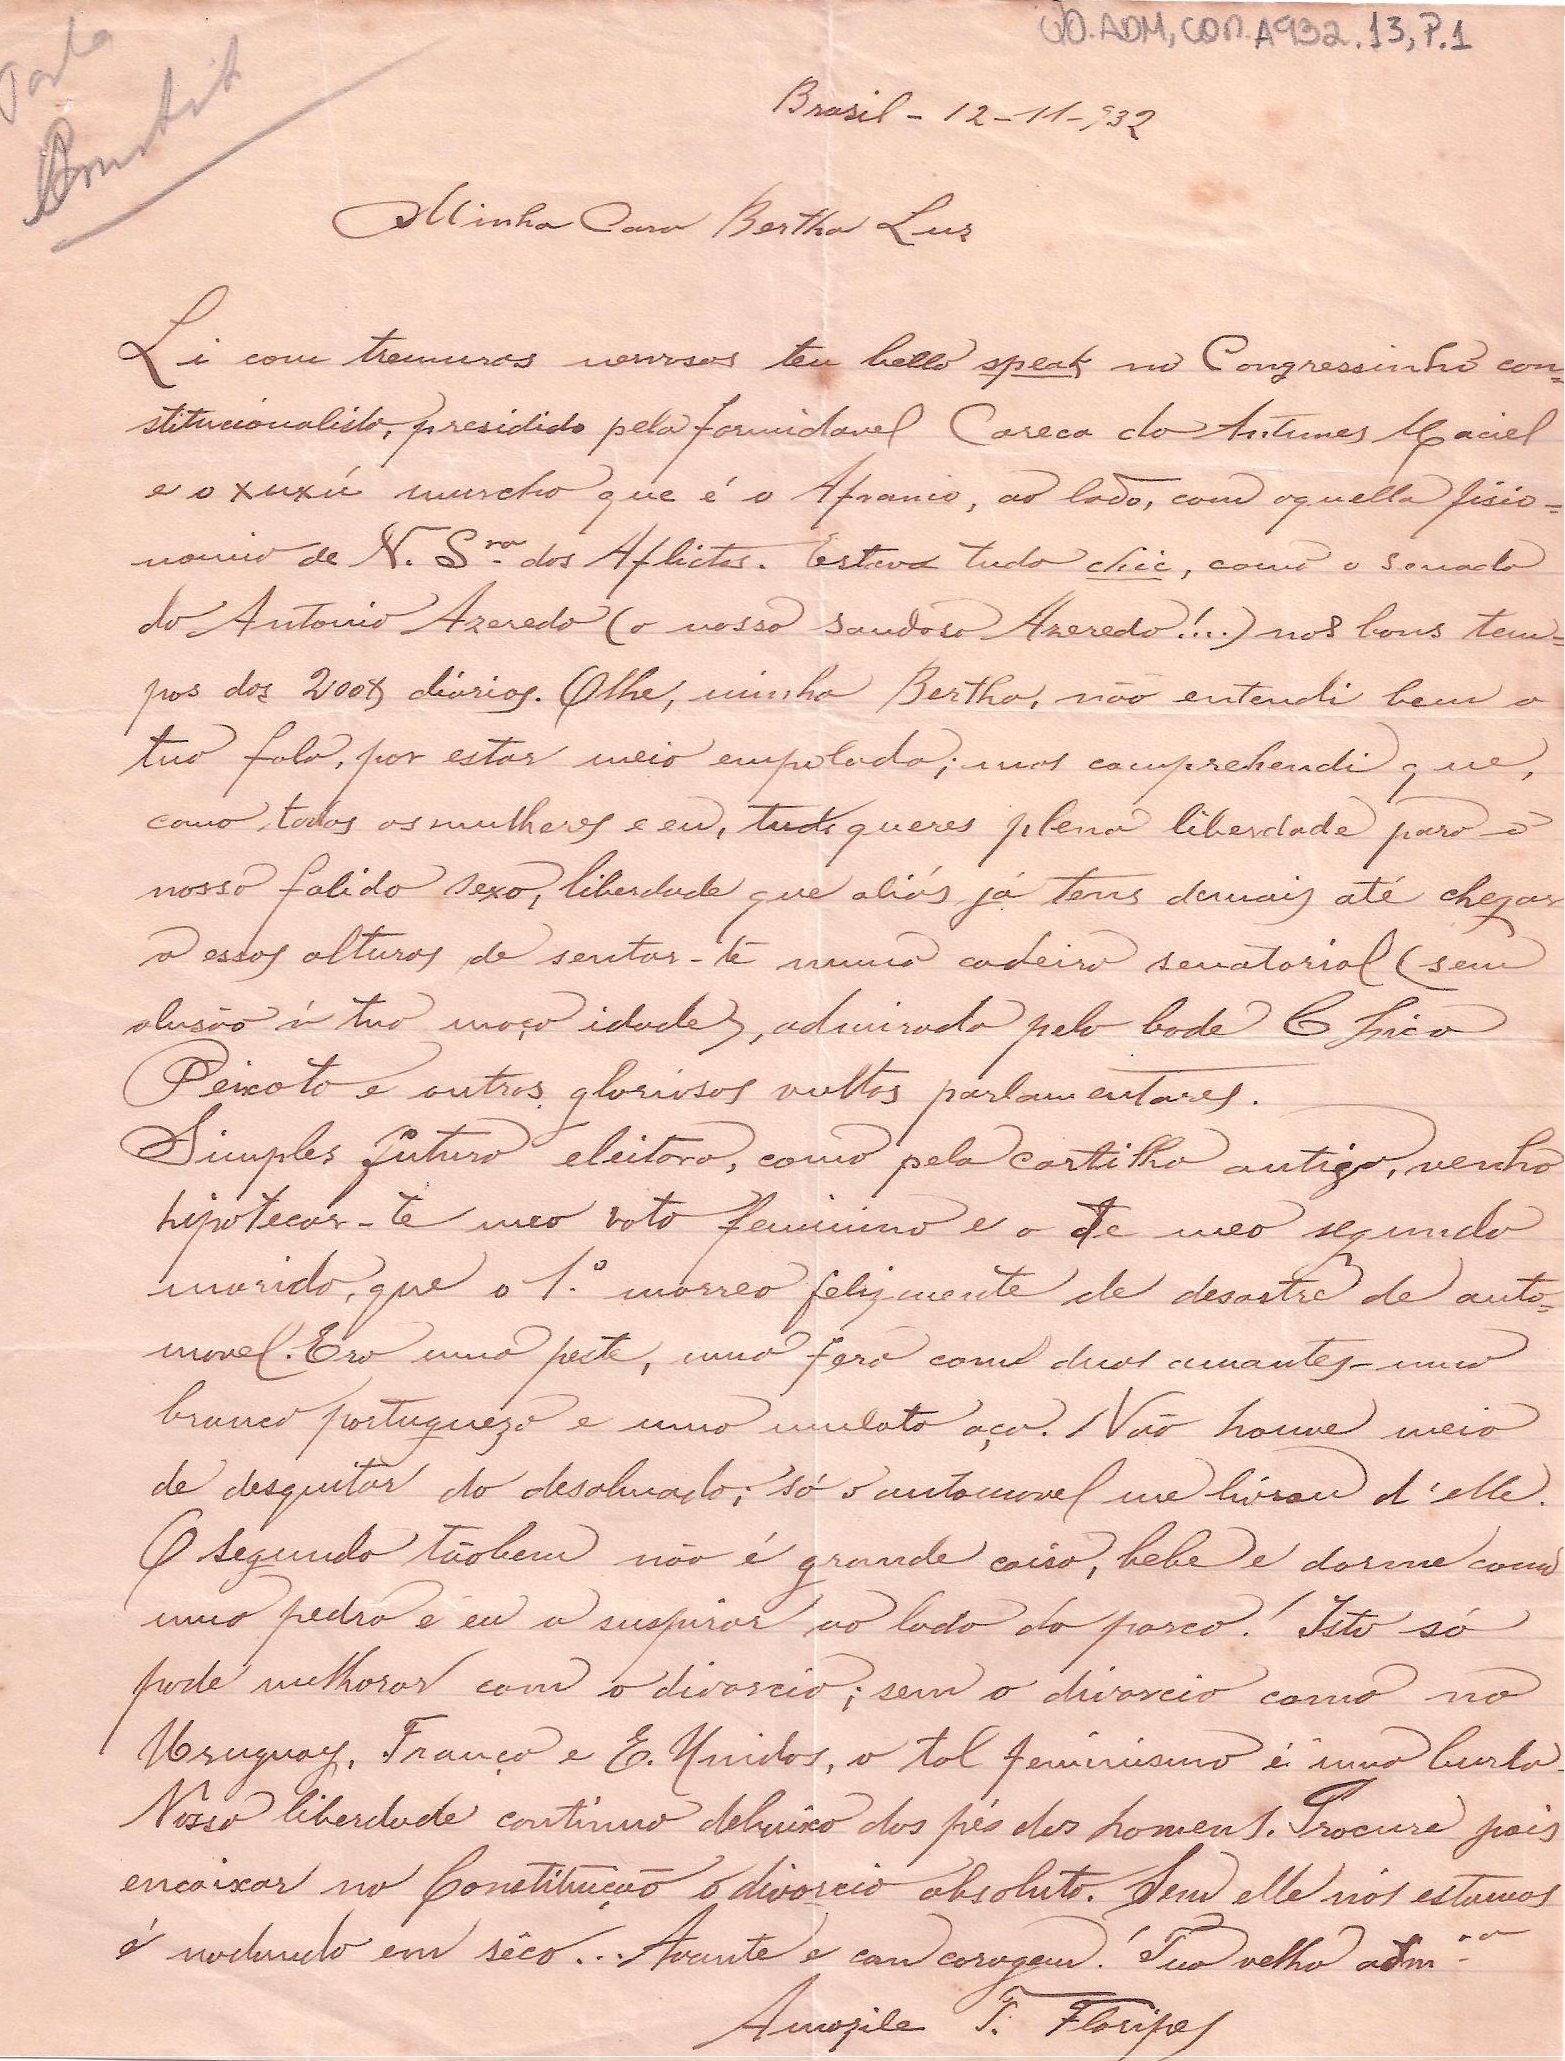 QD.ADM,COR.A932.13,P.1
Pasta
Brasil - 12-11-932
Minha Cara Bertha Luz
Li com tremuras nervosas teu bello speak no Congressinho con=
stitucionalista, presidido pela formidavel Careca do Antunes Maciel
e o xuxú murcho que é o Afranio, ao lado, com aquella fisio=
nomia de N. Sra. dos Aflictos. Estava tudo chic, como o senado
do Antonio Azeredo (o nosso saudoso Azeredo!...) nos bons tem=
pos dos 200$ diarios. Olhe, minha Bertha, não entendi bem a
tua fala, por estar meio empolada; mas comprehendi que,
como todas as mulheres e eu, tude queres plena liberdade para o
nosso falido sexo, liberdade que aliás já tens demais até chegar
a essas alturas de sentar-te numa cadeira senatorial (sem
alusão á tua moça idade), admirada pelo bode Chico
Peixoto e outros gloriosos vultos parlamentares.
Simples futura eleitora, como pela cartilha antiga, venho
hipotecar-te meo voto feminino e o de meo segundo
marido, que o 1.º morreo felizmente de desastre de auto=
movel. Era uma peste, uma fera com duas amantes - uma
branca portugueza e uma mulata aça. Não houve meio
de desquitar do desalmado; só o automovel me livrou d'elle.
O segundo tãobem não é grande coisa, bebe e dorme como
uma pedra e eu a suspirar ao lado do porco! Isto só
pode melhorar com o divorcio; sem o divorcio como no
Uruguay, França e E. Unidos, o tal feminismo é uma burla.
Nossa liberdade continua debaixo dos pés dos homens. Procure pois
encaixar na Constituição o divorcio absoluto. Sem elle nós estamos
é nadando em sêco... Avante e com coragem! Tua velha adm.ra
Amazile T. Floripes